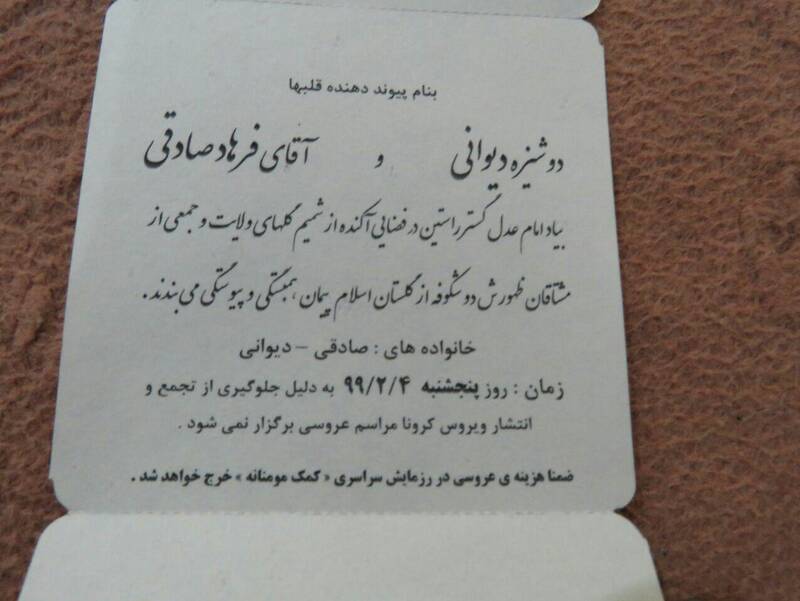 بنام پیوند دهنده قلبها
دوشیزه دیوانی و آقای فرهاد صادقی
بیاد امام عدل گستر راستین در فضایی آکنده از شمیم گلهای ولایت و جمعی از
مشتاقان ظهورش دو شکوفه از گلستان اسلام پیمان همبستگی و پیوستگی می بندند .
خانواده های : صادقی - دیوانی
زمان : روز پنجشنبه ۹۹/۲/۴ به دلیل جلوگیری از تجمع و
انتشار ویروس کرونا مراسم عروسی برگزار نمی شود .
ضمنا هزینه ی عروسی در رزمایش سراسری « کمک مومنانه » خرج خواهد شد .